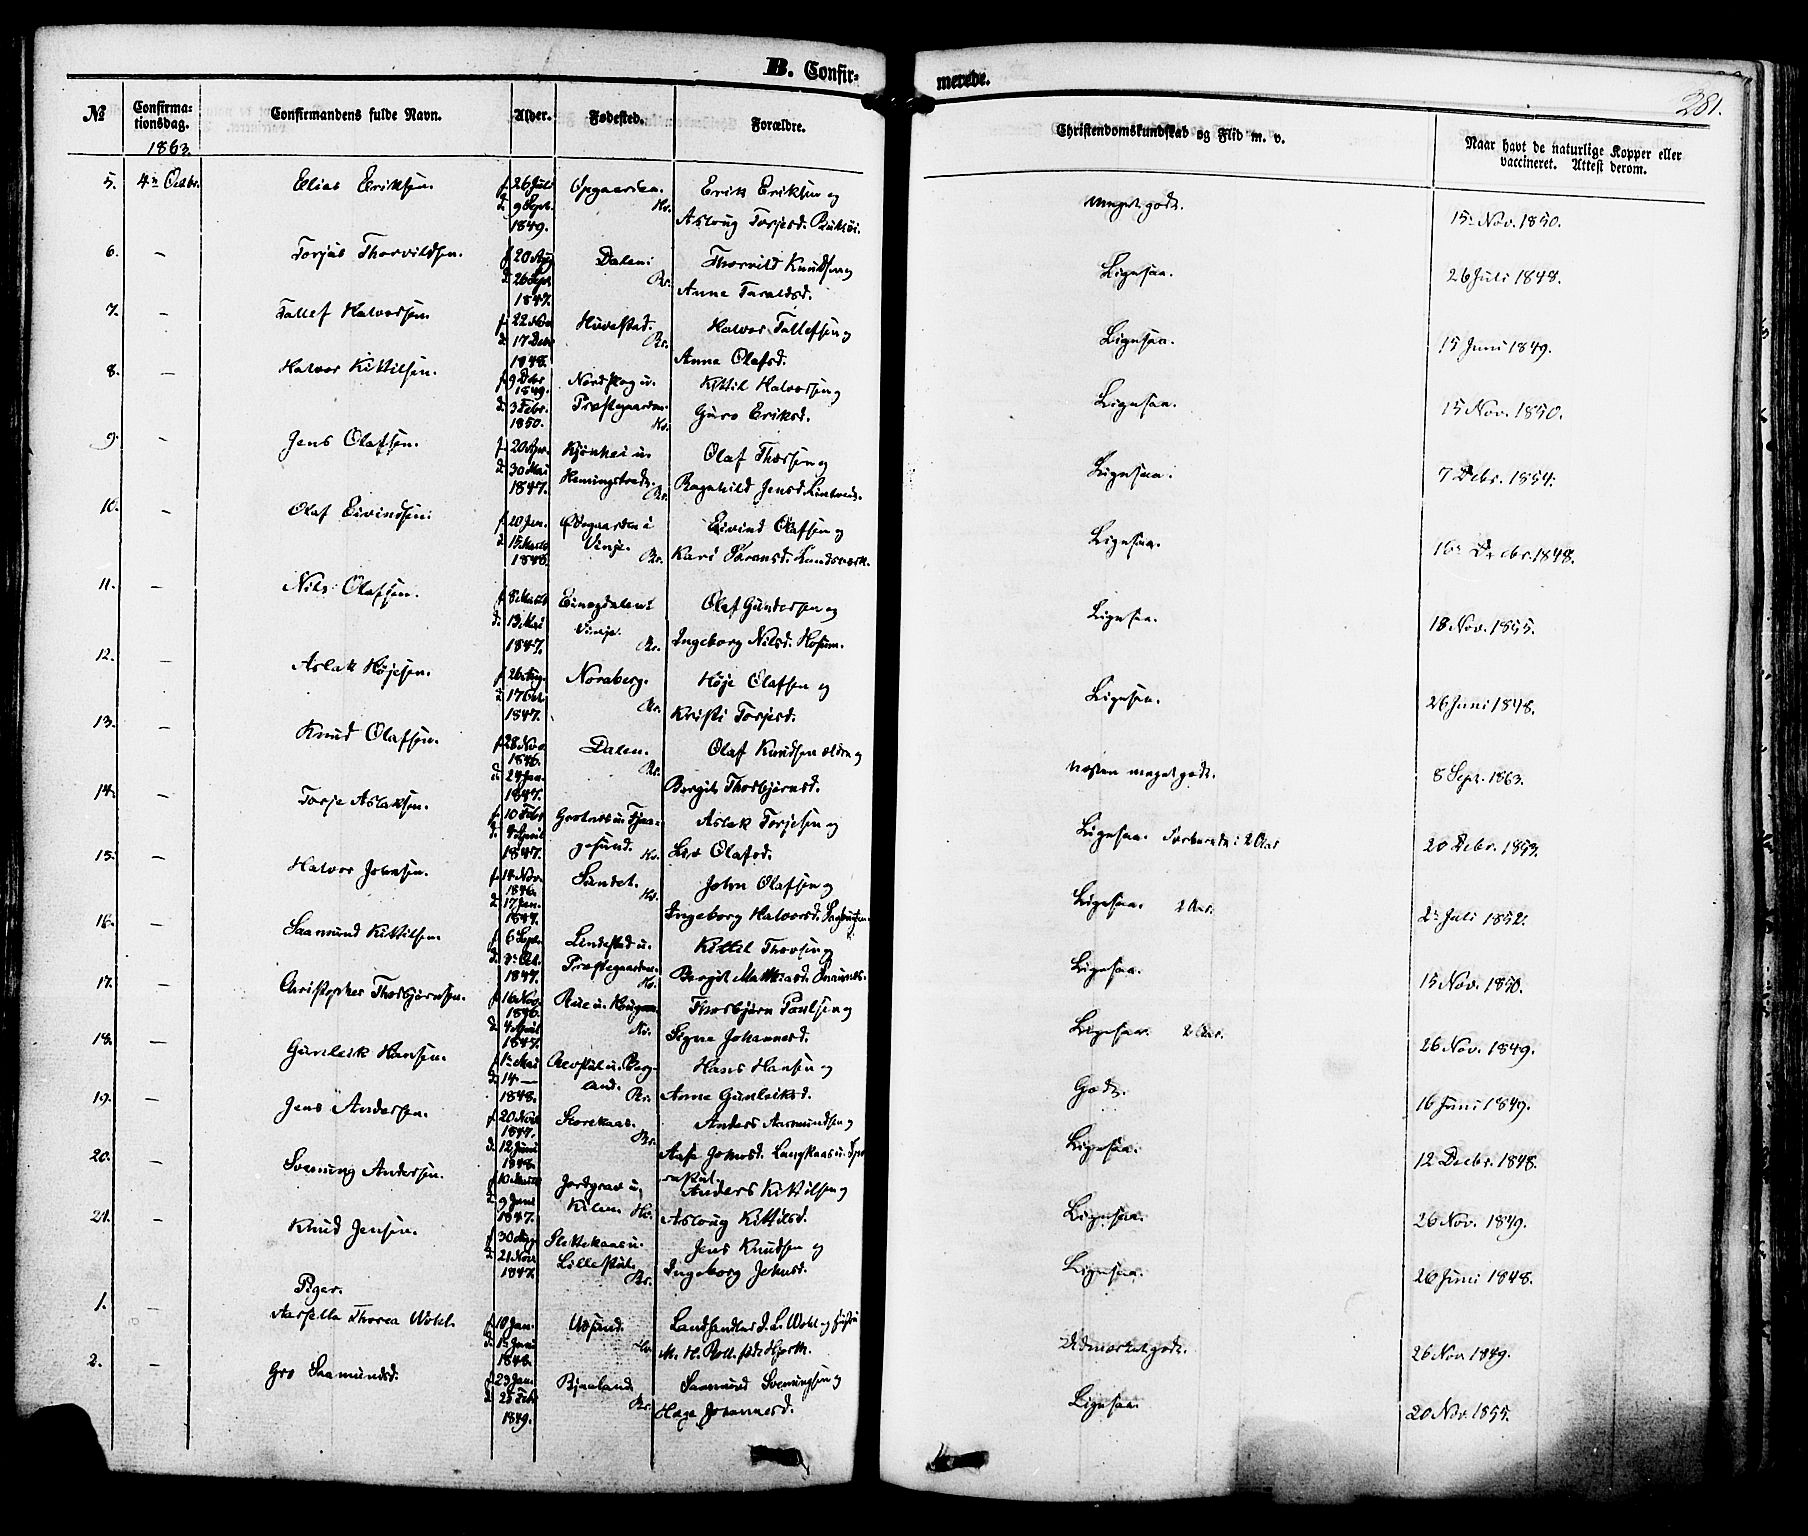 B. Confir-
merede.
281.
№
Confirma-
tionsdag.
Confirmandens fulde Navn.
Alder.
Fødested.
Forældre.
Christendomskundskab og Flid m. v.
Naar havt de naturlige Kopper eller
vaccineret. Attest derom.
1863.
5. 4de Octbr. Elias Eriksen. f. 26 Juli Opgaarden. Erik Eriksen og Meget godt. 15 Nov. 1850.
d. 9 Sept. Kv. Aslaug Torjesd.
1849.
6. — Torjus Thorvildsen. f. 20 Aug Dalen. Thorvild Knudsen og Ligesaa. 26 Juli 1848.
d. 26 Sept Br. Anne Taraldsd.
1847.
7. — Tallef Halvorsen. f. 22 Nov Huvestad. Halvor Tallefsen og Ligesaa. 15 Juni 1849.
d. 17 Debr Br. Anne Olafsd.
1848.
8. — Halvor Kittilsen. f. 9 Debr Nordskog u. Kittil Halvorsen og Ligesaa. 15 Nov. 1850.
1849.
d. 3 Febr. Præstegaarden. Guro Eriksd.
1850. Kv.
9. — Jens Olafsen. f. 20 Apr. Kjønhei u. Olaf Thorsen og Ligesaa. 7 Debr. 1854.
d. 30 Mai Hemingstveds. Ragnhild Jensd.
1847. Br.
10. — Olaf Eivindsen. f. 20 Jan. Ødegaarden i Eivind Olafsen og Ligesaa. 16 Decbr. 1848.
d. 15 Marts Vinje. Br. Kari
1848.
11. — Nils Olafsen. f. 8 Marts i Olaf Gundersen og Ligesaa. 18 Nov. 1855.
d. 13 Mai Vinje. Ingeborg Nilsd.
1847. Br.
12. — Aslak Højesen. f. 26 Aug. Noraberg. Høje Olafsen og Ligesaa. 26 Juni 1848.
d. 17 Oct. Br. Kristi Torjesd.
1847.
13. — Knud Olafsen. f. 28 Nov. Dalen. Olaf Knudsen ældre og Næsten meget godt. 8 Sept. 1863.
1846.
d. 24 Jan. Br. Bergit Thorbjørnsd.
1847.
14. — Torje Aslaksen. f. 10 Febr u. Aslak Torjesen og Ligesaa. Forberedt i 2 Aar 20 Debr. 1853.
d. 4 April Kv. Liv Olafsd.
1847.
15. — Halvor Johnsen. f. 14 Nov. Sundet. John Olafsen og Ligesaa. 2 Aar. 2 Juli 1852.
1846.
d. 17 Jan. Kv. Ingeborg Halvorsd.
1847.
16. — Saamund Kittilsen. f. 6 Septr. Lindestad u. Kittil Thovsen og Ligesaa. 15 Nov. 1850.
d. Oct. Præstegaarden. Bergit Matthiasd.
1847. Kv.
17. — Christopher Thorbjørnsen. f. 16 Nov. Rue u. Thorbjørn Paulsen og Ligesaa. 2 Aar. 26 Nov. 1849.
1846.
d. 4 April Signe Johannesd.
1847.
18. — Gunleik Hansen. f. 1 Mai u. Berg- Hans Hansen og Godt. 16 Juni 1849.
d. 14 — land. Br. Anne Gunleiksd.
1848.
19. — Jens Andersen. f. 20 Nov. Storekaas. Anders Aamundsen og Ligesaa. 12 Decbr. 1848.
1847.
d. 12 Juni Br. Aase Johnsd. Langkaas u.
1848.
20. — Svenung Andersen. f. 10 Marts Jordgrav u. Anders Kittilsen og Ligesaa. 26 Nov. 1849.
d. 9 Juni Kilen Hv. Aslaug Kittilsd.
1847.
21. — Knud Jensen. f. 30 Aug. Slettekaas u. Jens Knudsen og Ligesaa. 26 Juni 1848.
d. 21 Nov. Lillestul. Ingeborg Johnsd.
1847. Br.
Piger.
1. — Thorea Wohl. f. 10 Jan. Landhandler J. L. Wohl og Hustru Udmærket godt. 26 Nov 1849.
d. 1 Juni
1848.
2. — Gro Saamundsd. f. 23 Jan Bjaaland Saamund Svenungsen og Ligesaa. 20 Nov. 1855.
d. 25 Febr Br. Hæge Johannesd.
1849.